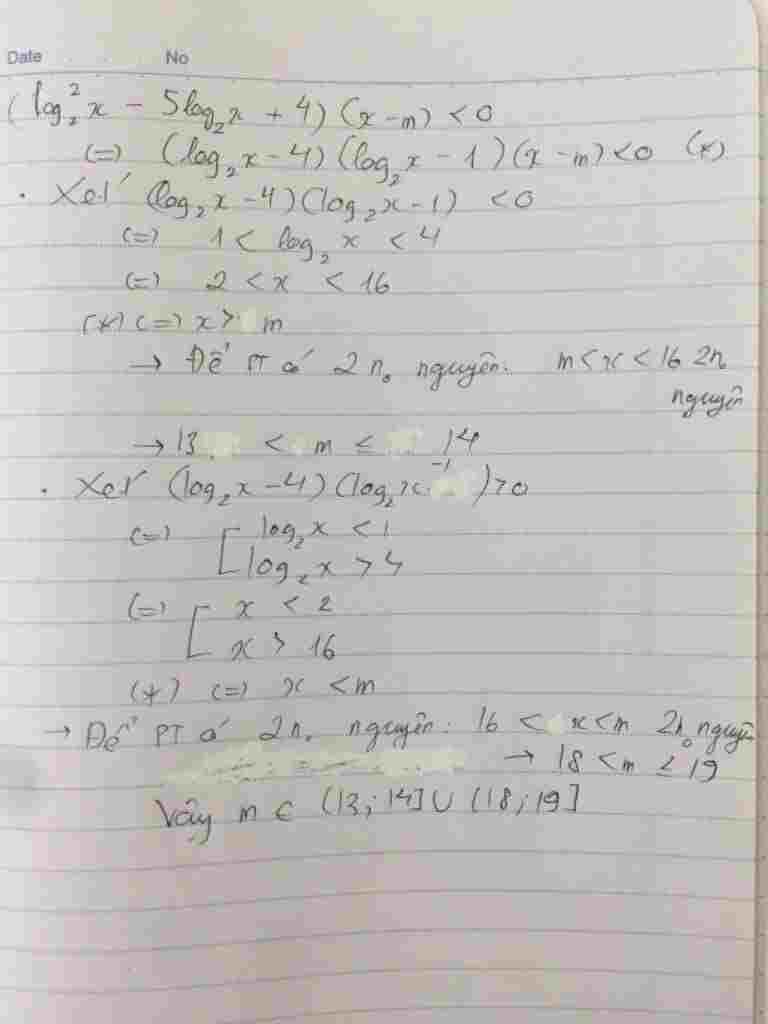 Date No
(log₂²x - 5log₂x + 4)(x-m) < 0
(=) (log₂x - 4)(log₂x - 1)(x-m) < 0 (*)
. Xét (log₂x - 4)(log₂x - 1) < 0
(=) 1 < log₂x < 4
(=) 2 < x < 16
(*) (=) x > m
→ Để PT có 2 n₀ nguyên: m < x < 16 2n₀
nguyên
→ 13 < m ≤ 14
. Xét (log₂x - 4)(log₂x -1) > 0
(=) [ log₂x < 1
log₂x > 4
(=) [ x < 2
x > 16
(*) (=) x < m
→ Để PT có 2n₀ nguyên: 16 < x < m 2n₀ nguyên
→ 18 < m ≤ 19
Vậy m ∈ (13; 14] ∪ (18; 19]